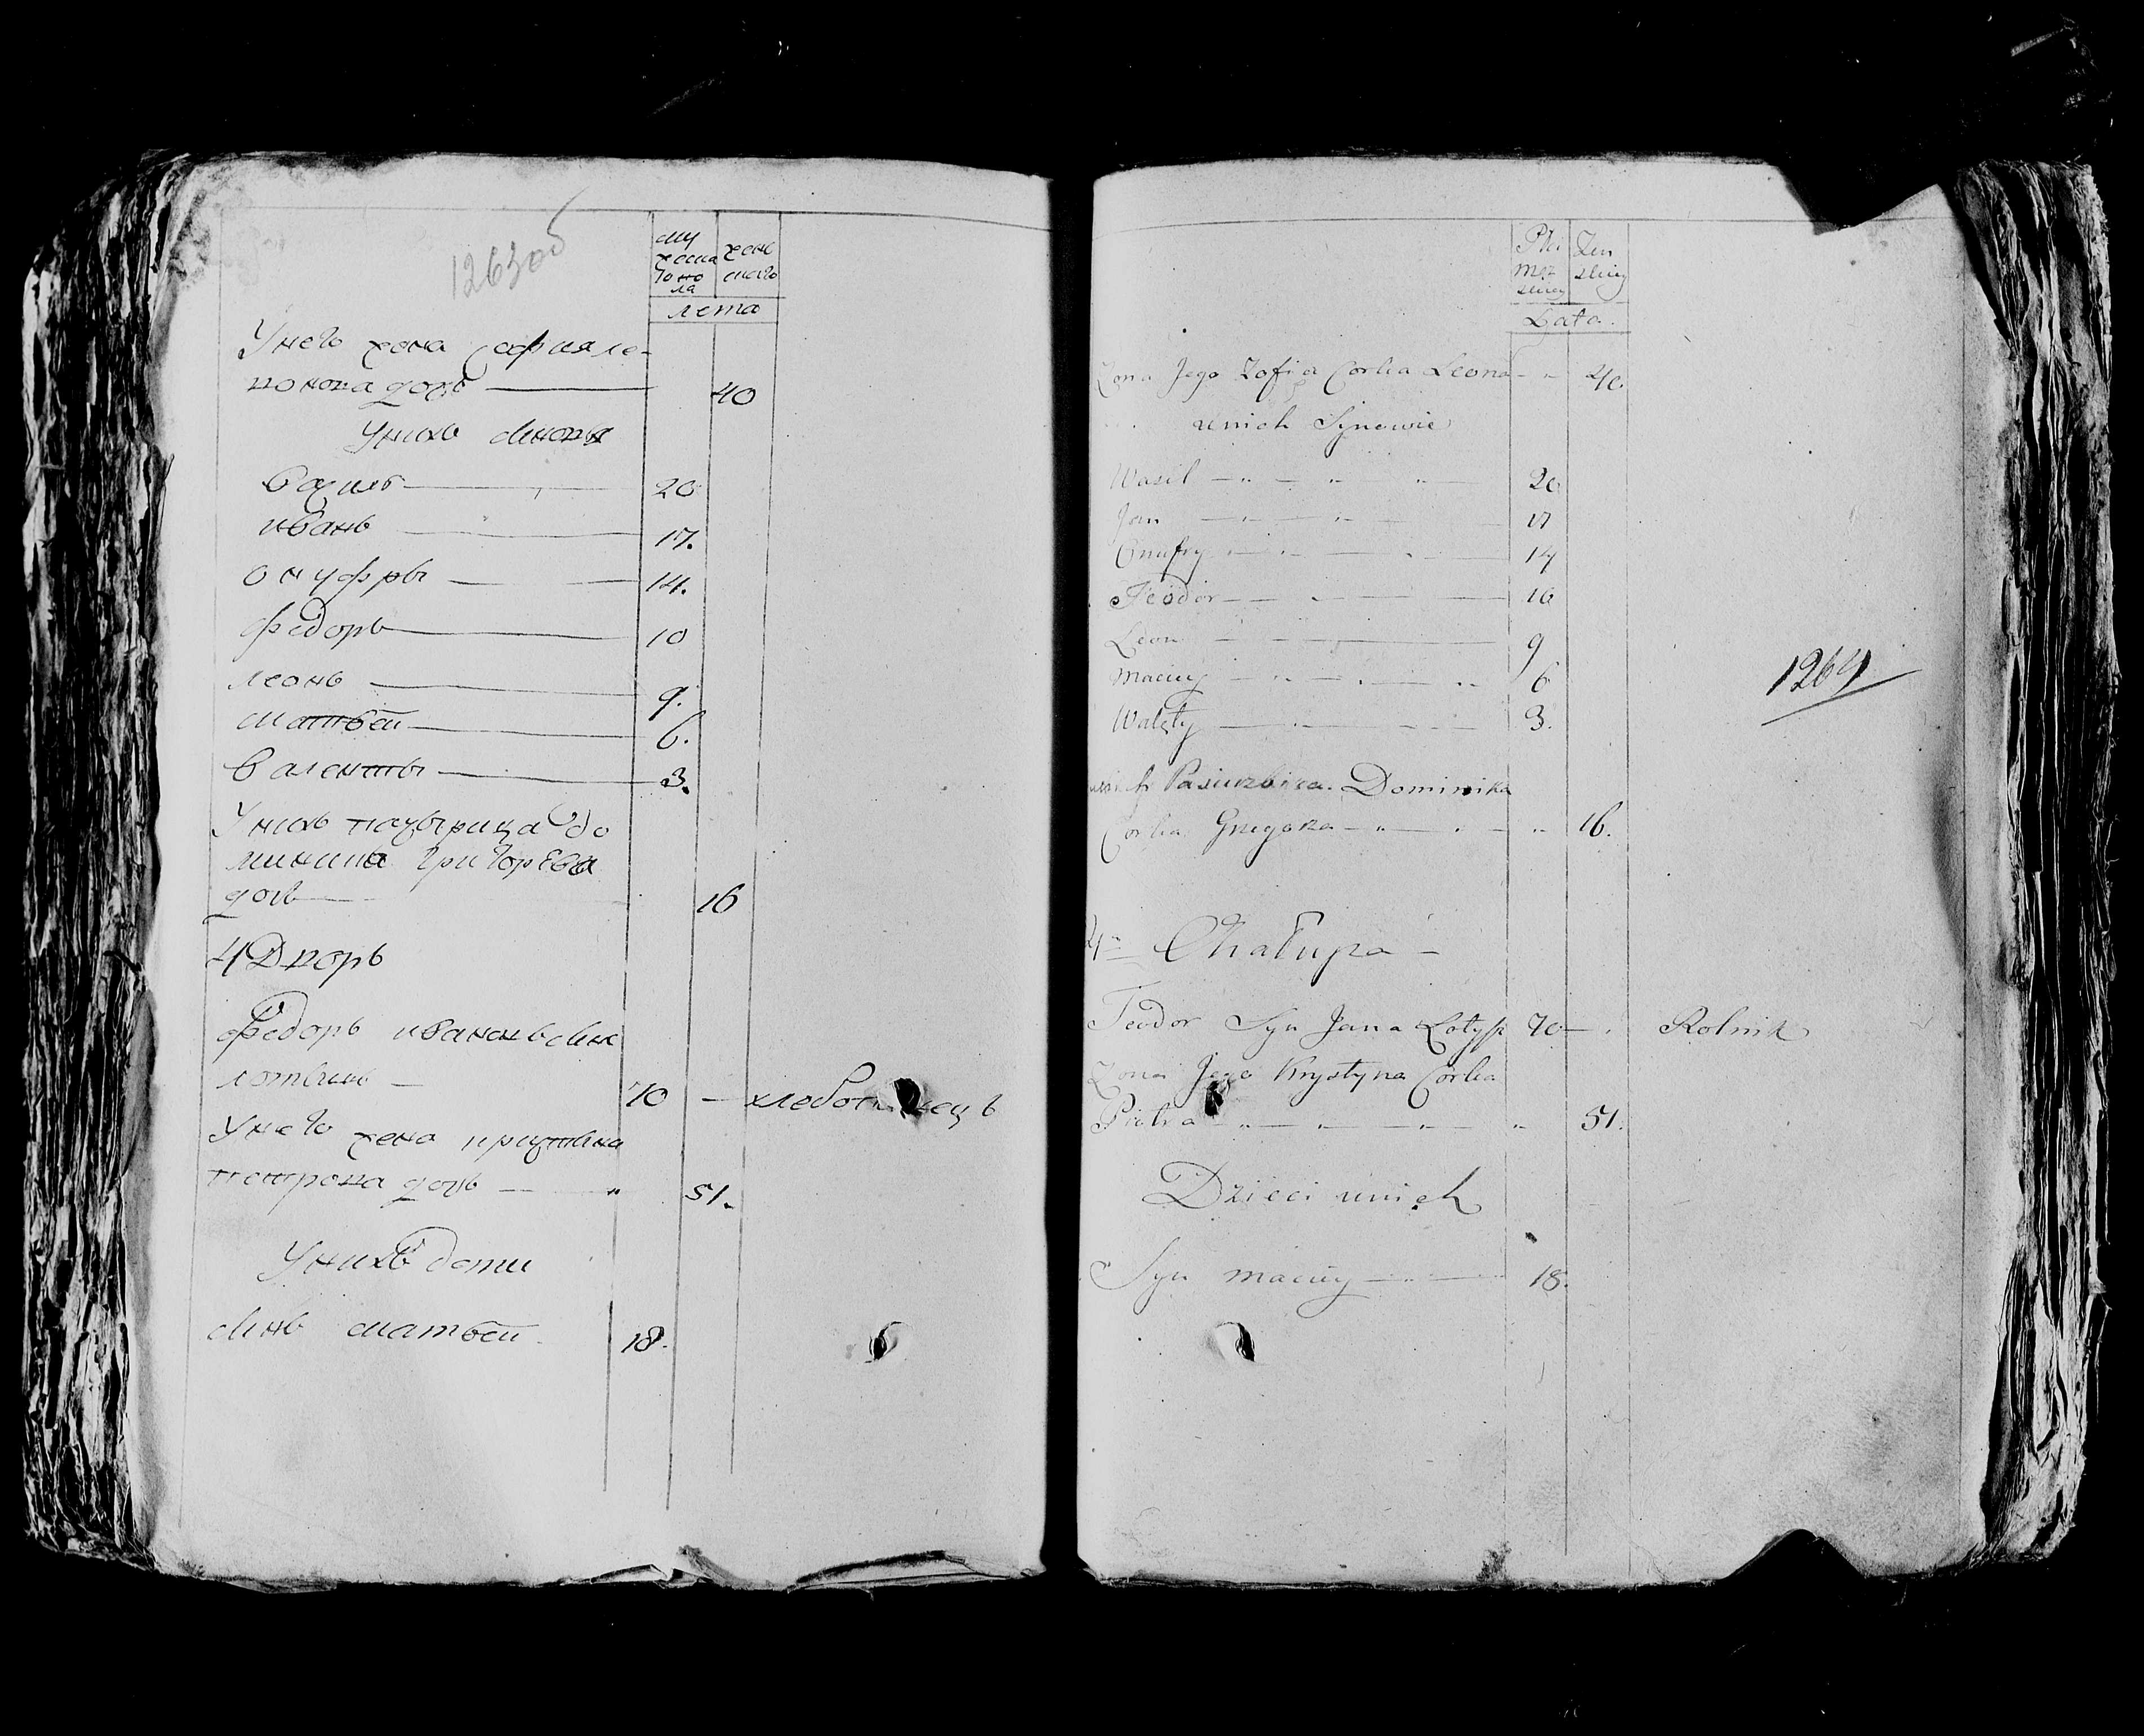 1263об
му жеска го по ла
жен скаго
лета
Унего жена Софияле-
онова дочь 40
Унихъ сыновя
Василь 20
иванъ 17.
онуфры 14.
федоръ 10
леонъ 9.
матвей 6.
валенты 3.
Унихъ пазырица до
миника григорева
дочь 16
4 Дворъ
федоръ ивановъ сынъ
лотышъ 70 —
Унего жена криштина
петрова дочь — " 51.
Унихъ дети
сынъ матвей 18.
Płci Męz skiey
Zen skiey
Lata.
Zona Jego Zofia Corka Leona 40.
unich Synowie
Wasil 20
Jan 17
Onufry 14
Teodor 10
Leon 9
Maciey 6
Walęty 3.
unich Pasierbica Dominika
Corka Gregorza 16.
4a Chałupa —
Teodor Syn Jana Łotysz 70 — Rolnik
Zona Jego Krystyna Corka
Piotra 51.
Dzieci unich
Syn Maciey 18.
1264